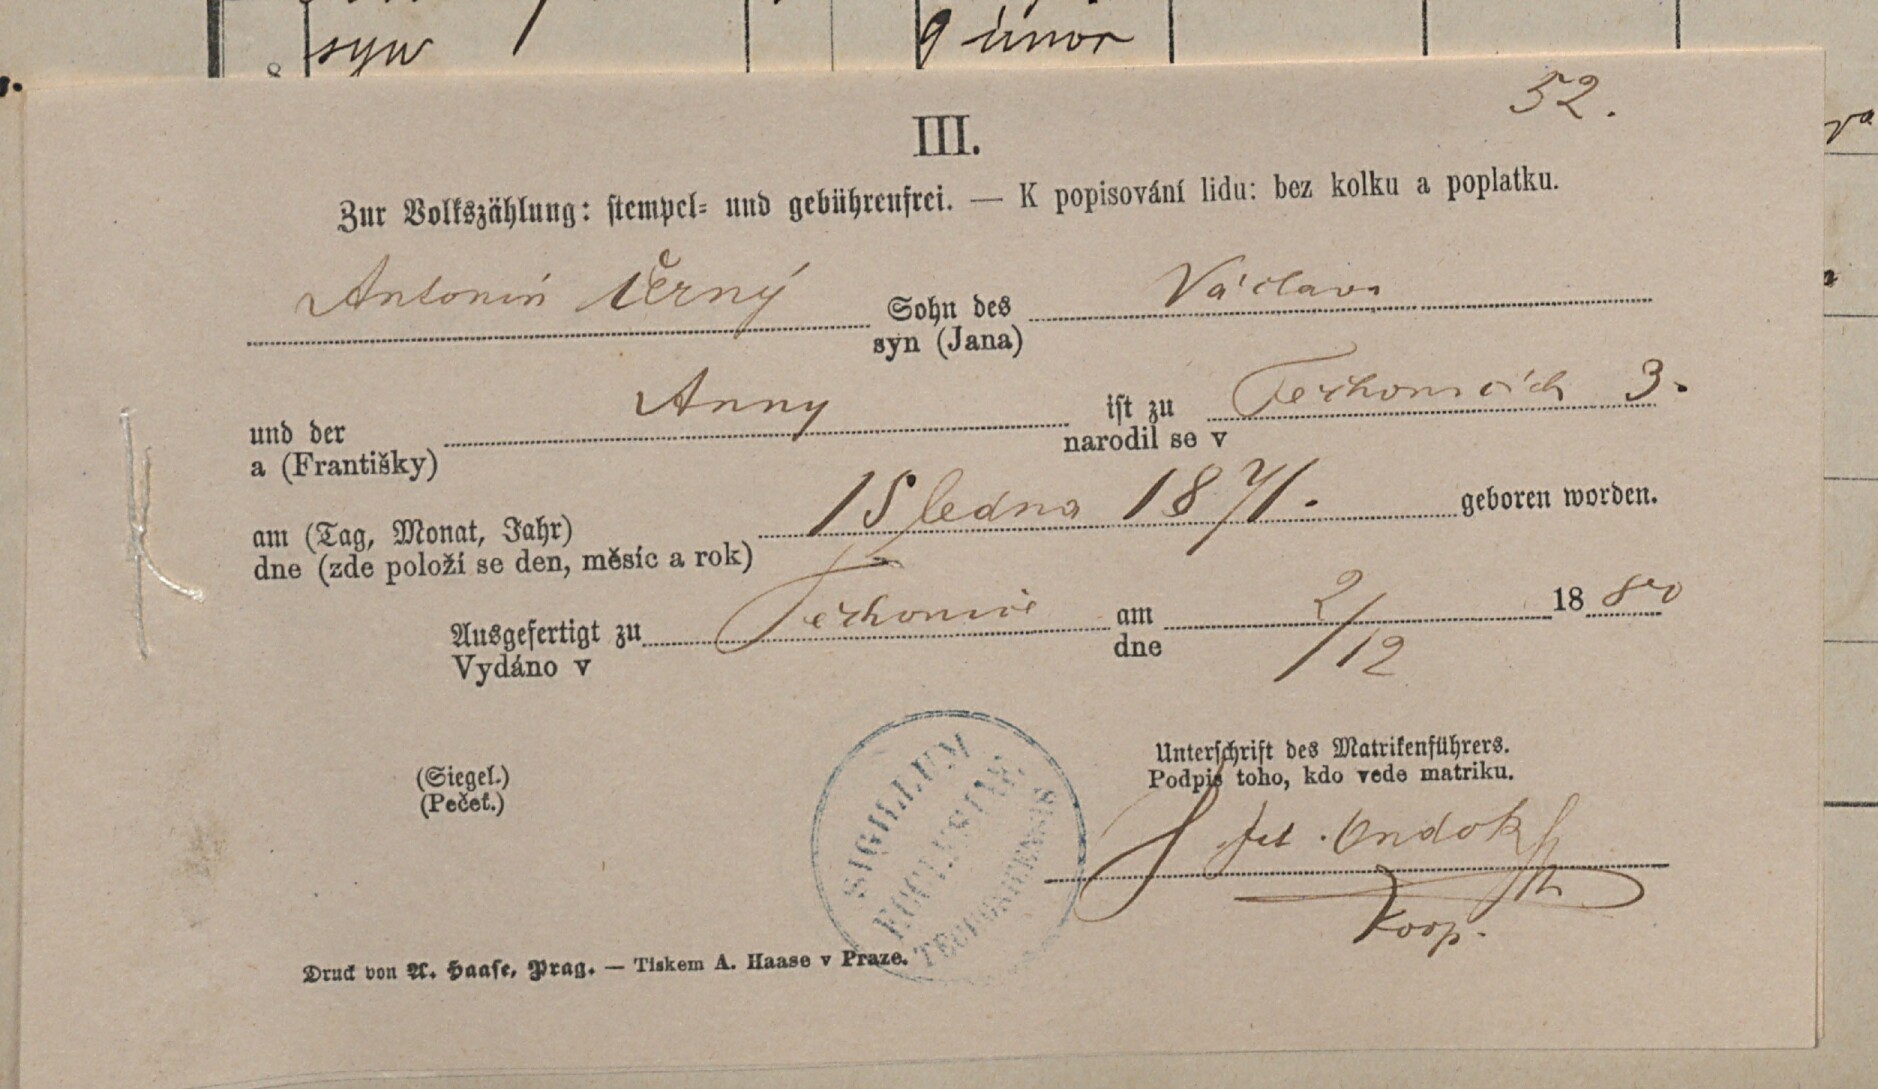 syn
9 únor
52.
III.
Zur Volkszählung: stempel- und gebührenfrei. — K popisování lidu: bez kolku a poplatku.
Antonín Černý Sohn des Václava
syn (Jana)
und der Anny ist zu 3.
a (Františky) narodil se v
am (Tag, Monat, Jahr) 15 ledna 1871. geboren worden.
dne (zde položí se den, měsíc a rok)
Ausgefertigt zu am 2/12 1880
Vydáno v dne
Unterschrift des Matrikenführers.
(Siegel.) Podpis toho, kdo vede matriku.
(Pečeť.)
SIGILLUM
ECCLESIAE
Ondok
Koop.
Druck von A. Haase, Prag. — Tiskem A. Haase v Praze.